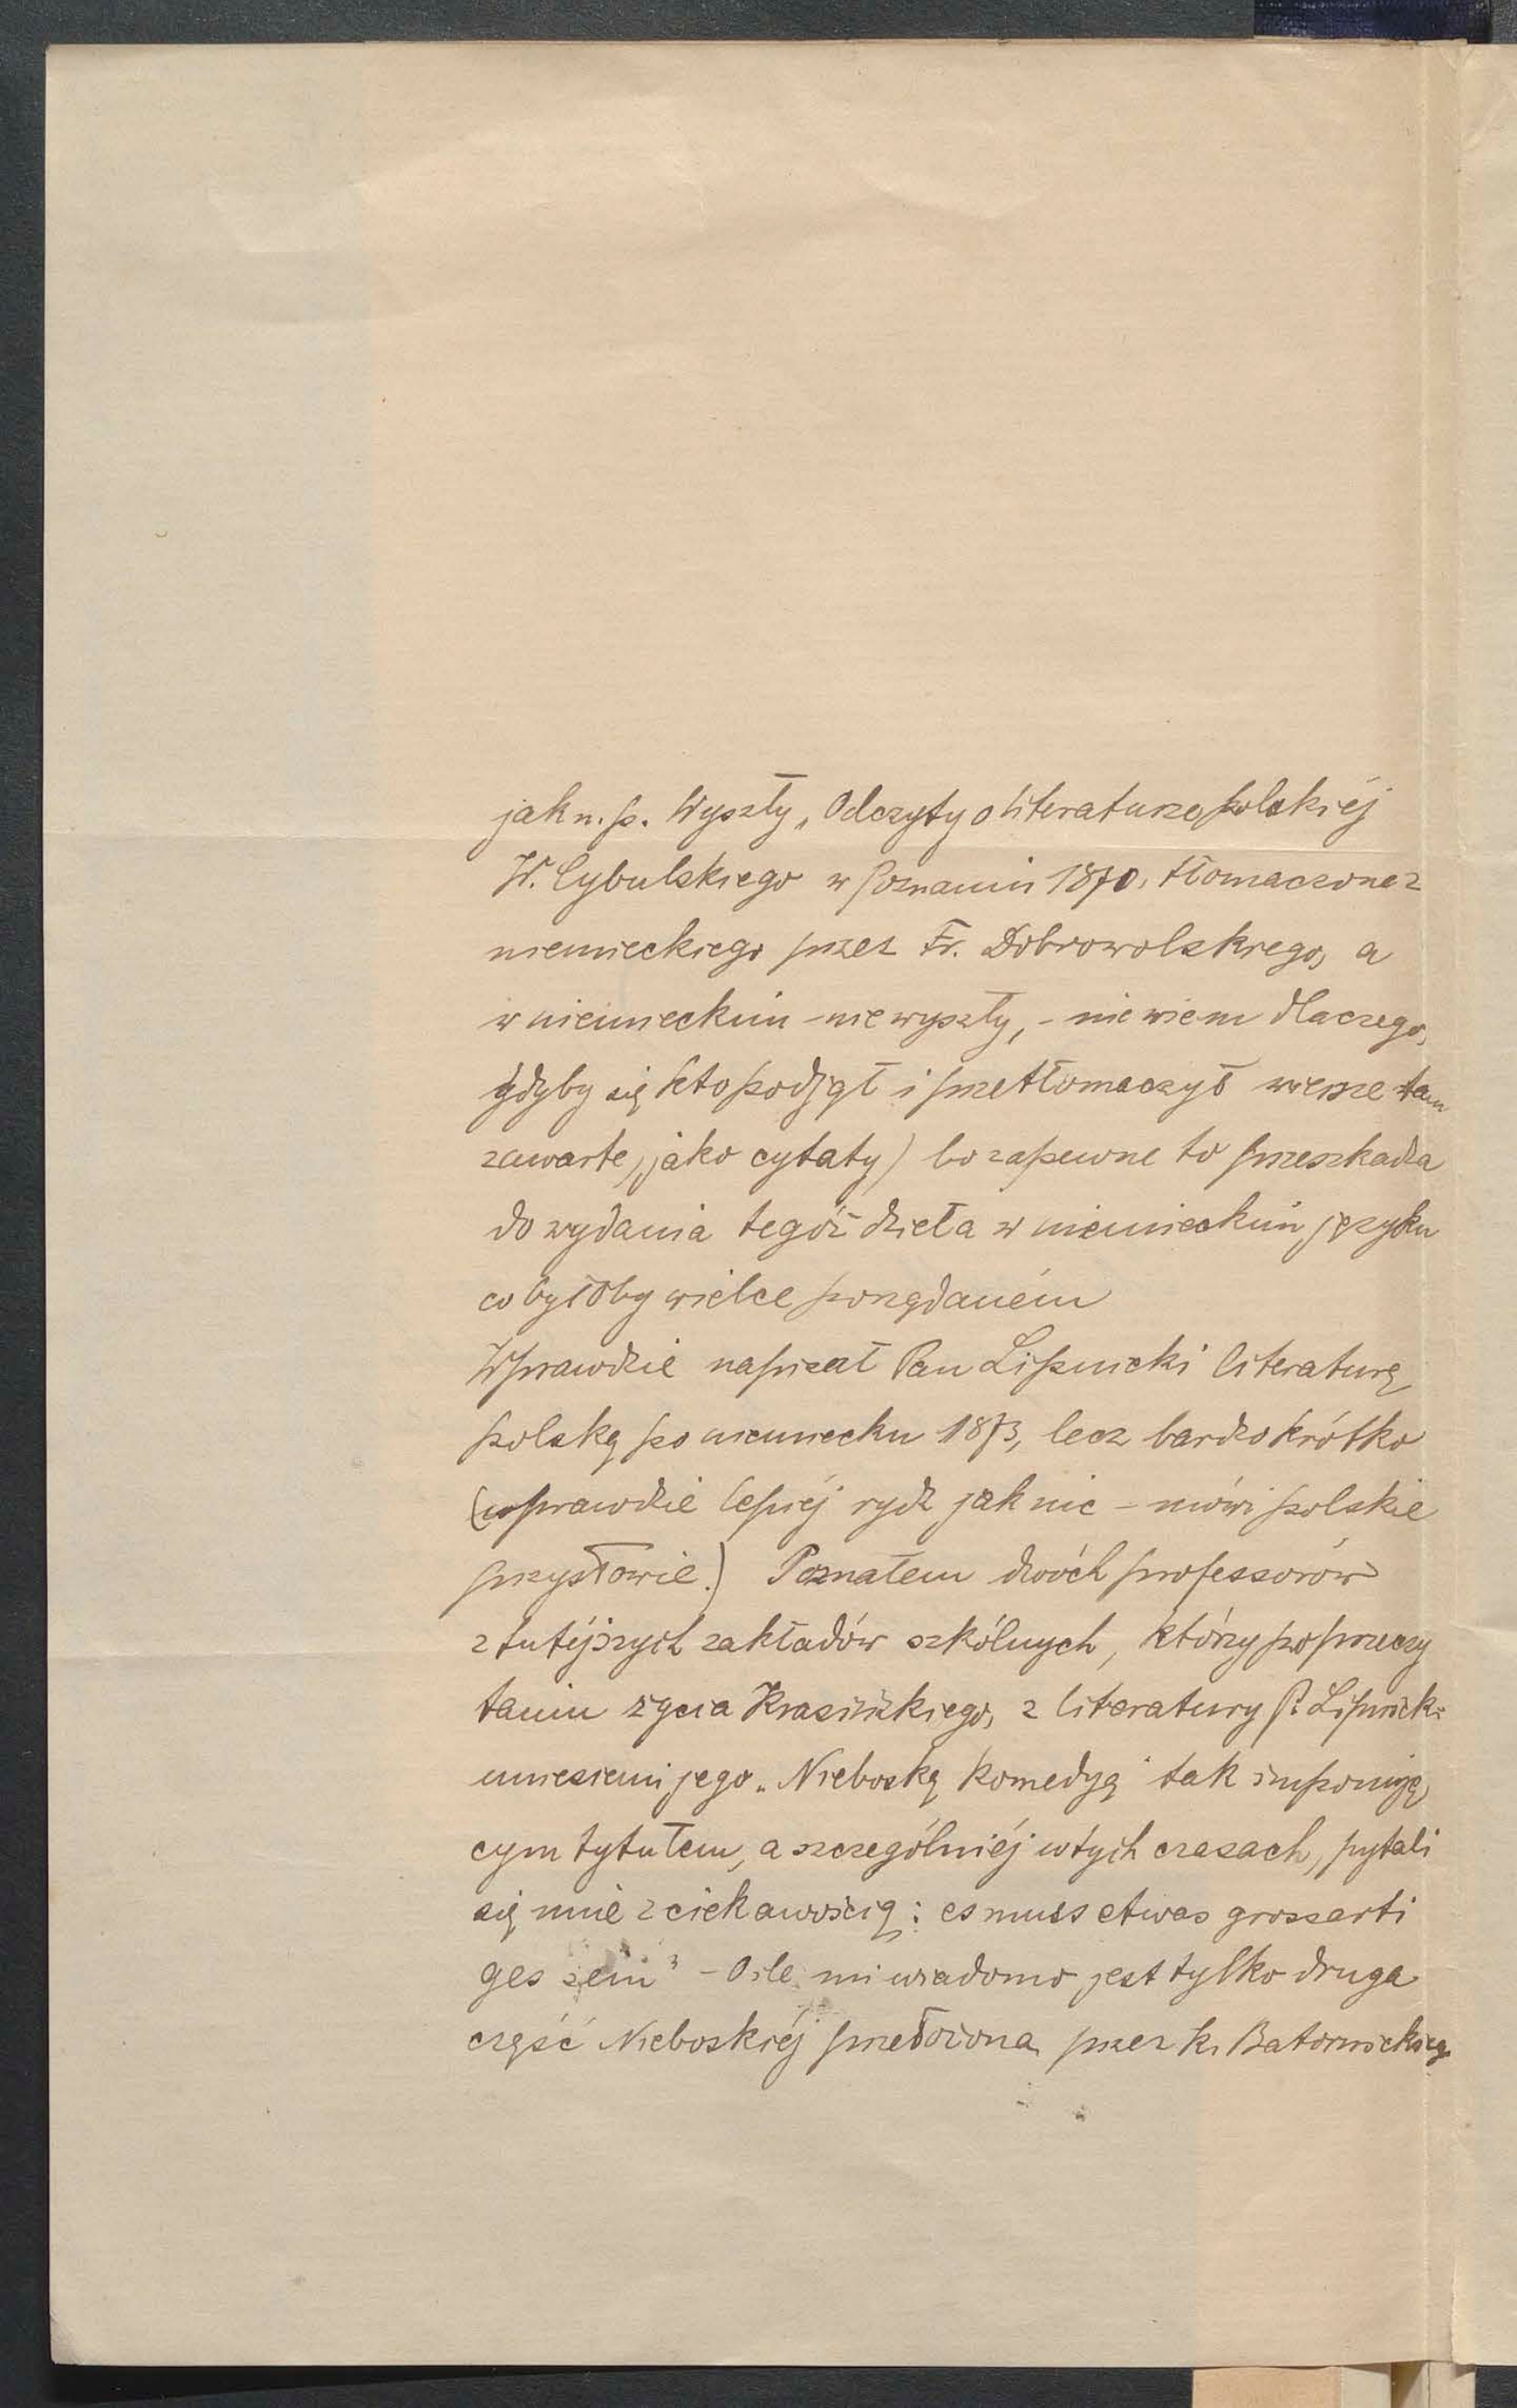 jak n.p. Wyszły „Odczyty o literaturze polskiéj
W. Cybulskiego w Poznaniu 1870, tłomaczone z
niemieckiego przez Fr. Dobrowolskiego, a
w niemieckim - nie wyszły, - nie wiem dlaczego,
gdyby się kto podjął i przetłomaczył wiersze tam
zawarte, jako cytaty) bo zapewne to przeszkadza
do wydania tegóż dzieła w niemieckim języku
co byłoby wielce pożądaném
Wprawdzie napisał Pan Lipnicki literaturę
polską po niemiecku 1873, lecz bardzo krótko
(wprawdzie lepiéj rydz jak nic - mówi polskie
przysłowie.) Poznałem dwóch professorów
z tutéjszych zakładów szkólnych, którzy po przeczy
taniu życia Krasińskiego, z literatury P. Lipnick:
uniesieni jego „Nieboską Komedyą" tak imponują
cym tytułem, a szczególniéj w tych czasach, pytali
się mnie z ciekawością: es muss etwas grossarti
ges sein" - O ile mi wiadomo jest tylko druga
część Nieboskiéj przełożona przez k. Batornickieg